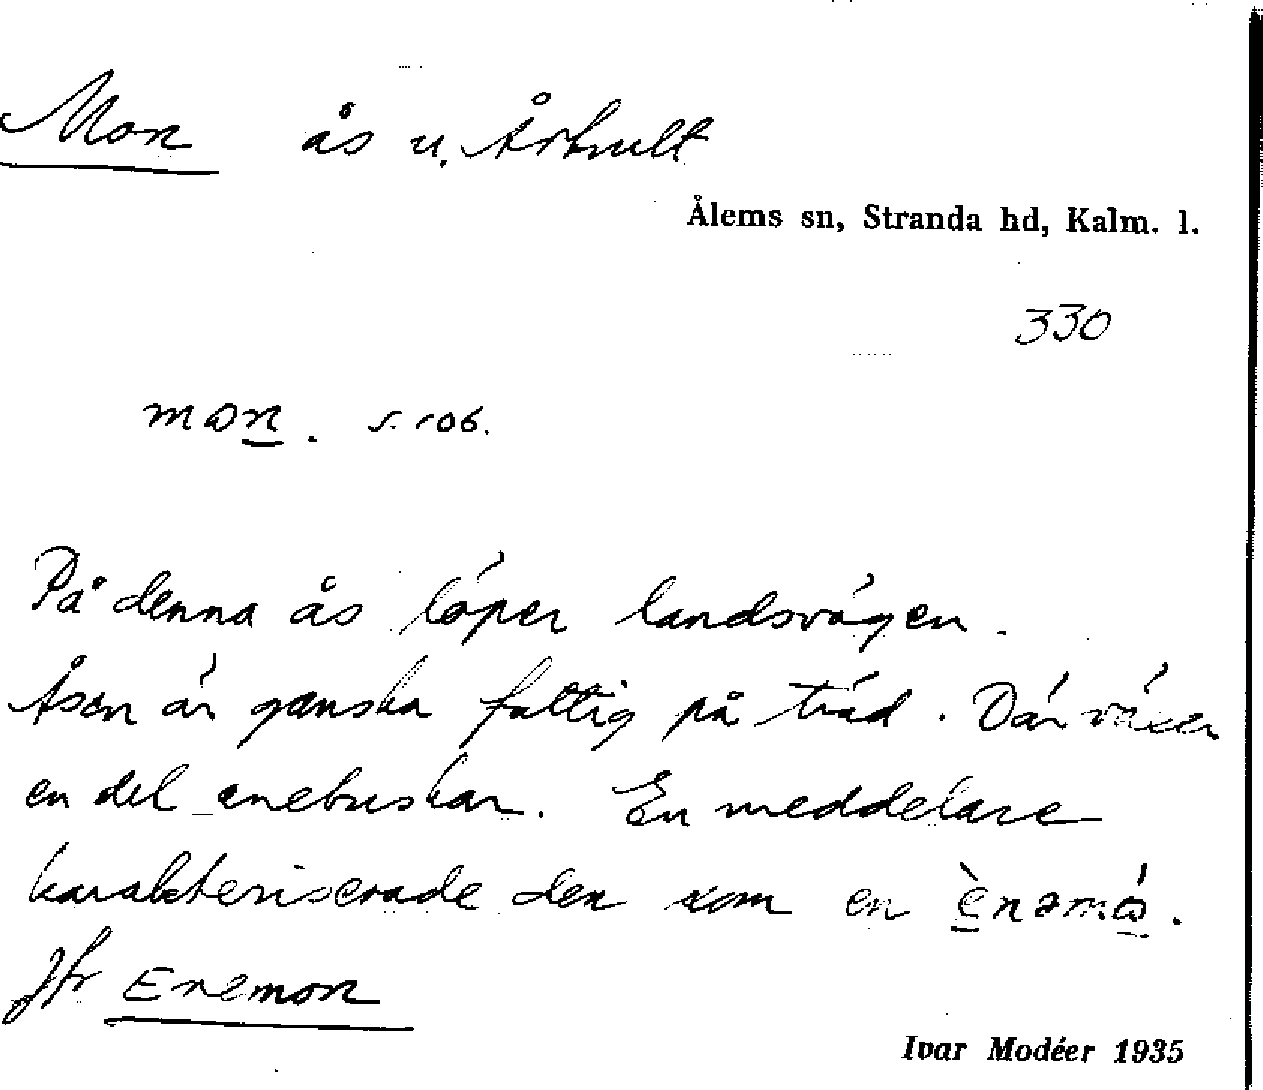 Mon ås u. Århult
Ålems sn, Stranda hd, Kalm. l.
330
mon. s. 106.
På denna ås löper landsvägen.
Åsen är ganska fattig på träd. Där växer
en del enebuskar. En meddelare
karakteriserade den som en
Jfr Enemon
Ivar Modéer 1935